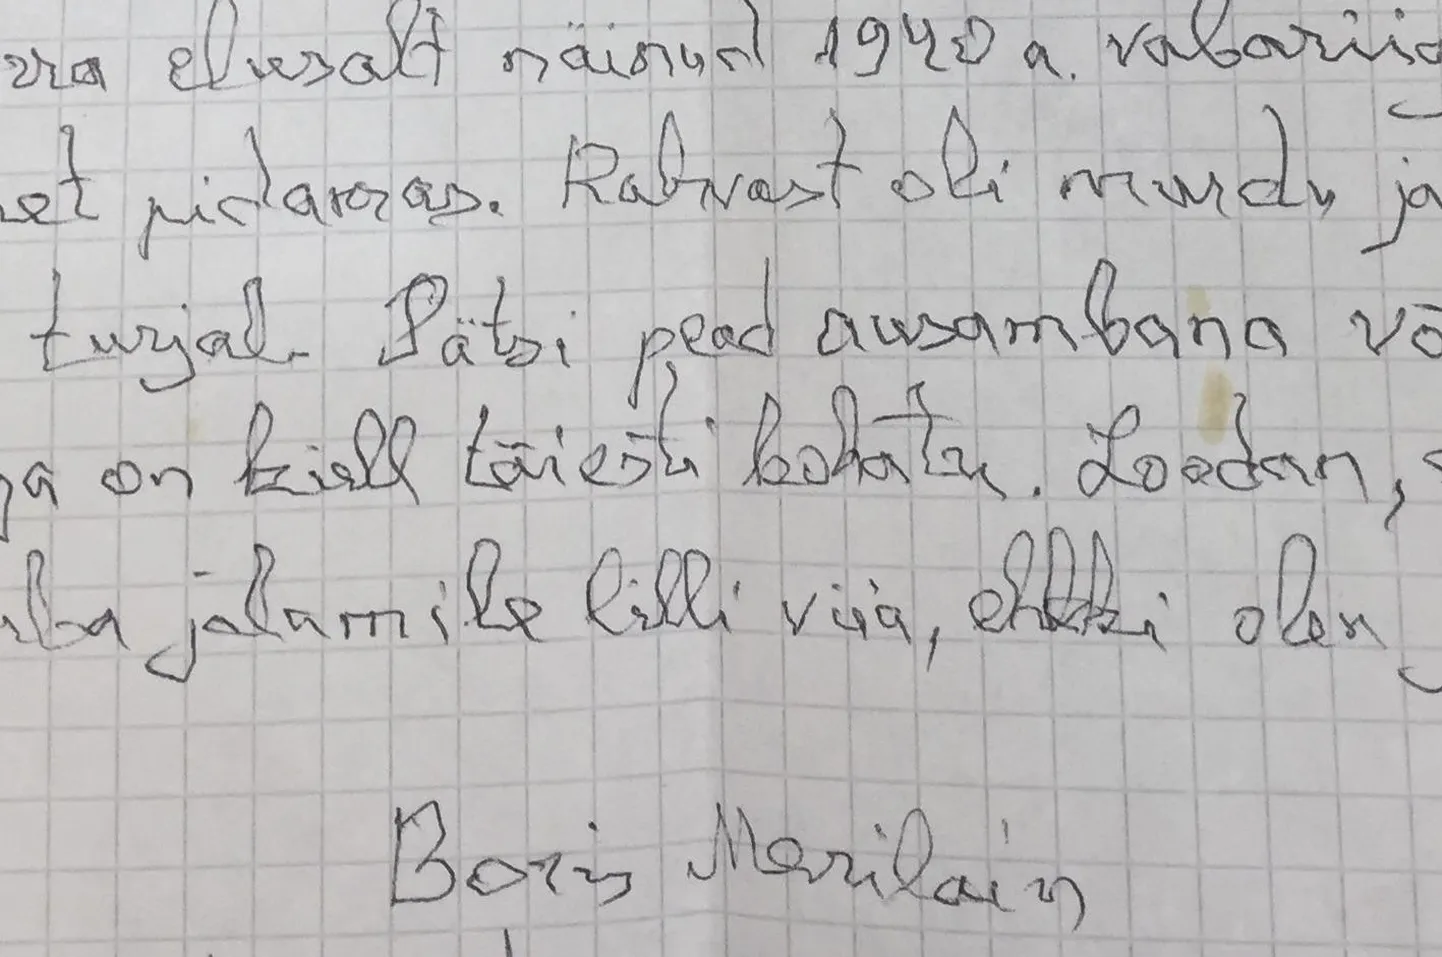 elusalt näinud 1940 a. vabariig
et pidamas. Rahvast oli murdu ja
turjal. Pätsi pead ausambana võ
ga on küll täiesti kohatu. Loodan,
mba jalamile lilli viia, ehkki olen
Boris Merilain